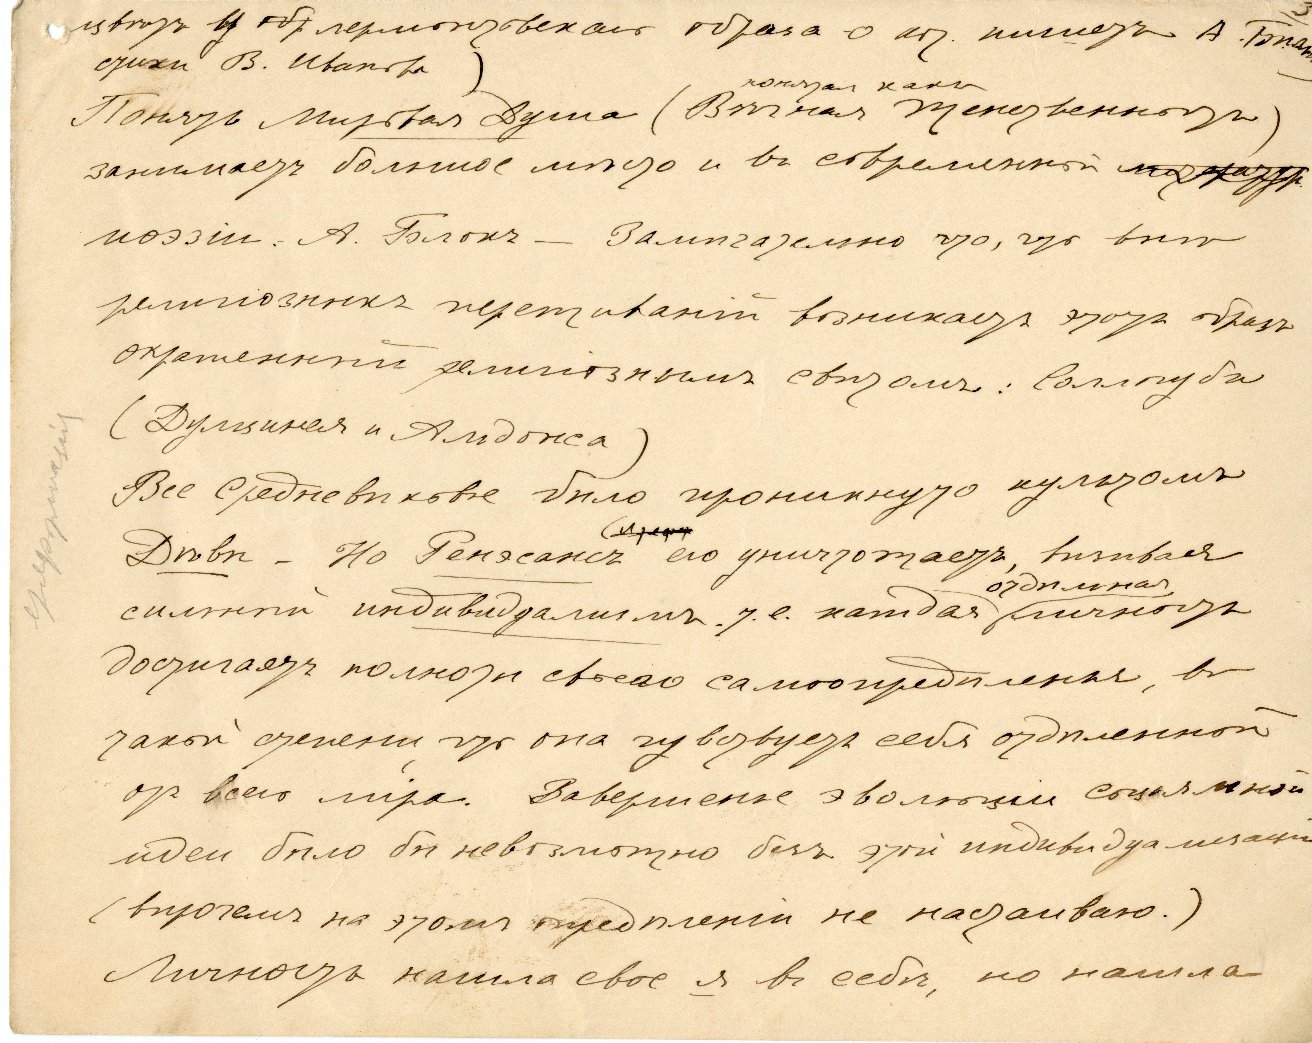 3
цвѣтъ лермонтовскаго образа о кот. пишетъ А.
стихи В. Иванова)
понятая какъ
Понять Міровая Душа (Вѣчная Женственность)
занимаетъ большое мѣсто и въ современной
поэзіи. А. Блокъ — Замѣчательно то, что внѣ
религіозныхъ переживаній возникаетъ этотъ образъ
окрашенный религіознымъ свѣтомъ: Соллогуба
(Дульцинея и Альдонса)
Все Средневѣковье было проникнуто культомъ
Дѣвы — Но Ренэсансъ его уничтожаетъ, вызывая
отдѣльная
сильный индивидуализмъ. т.е. каждая личность
достигаетъ полноты своего самоопредѣленья, въ
такой степени, что она чувствуетъ себя отдѣленной
отъ всего міра. Завершенье эволюціи соціальной
идеи было бы невозможно безъ этой индивидуализаціи
(впрочемъ на этомъ опредѣленіи не настаиваю.)
Личность нашла свое я въ себѣ, но нашла